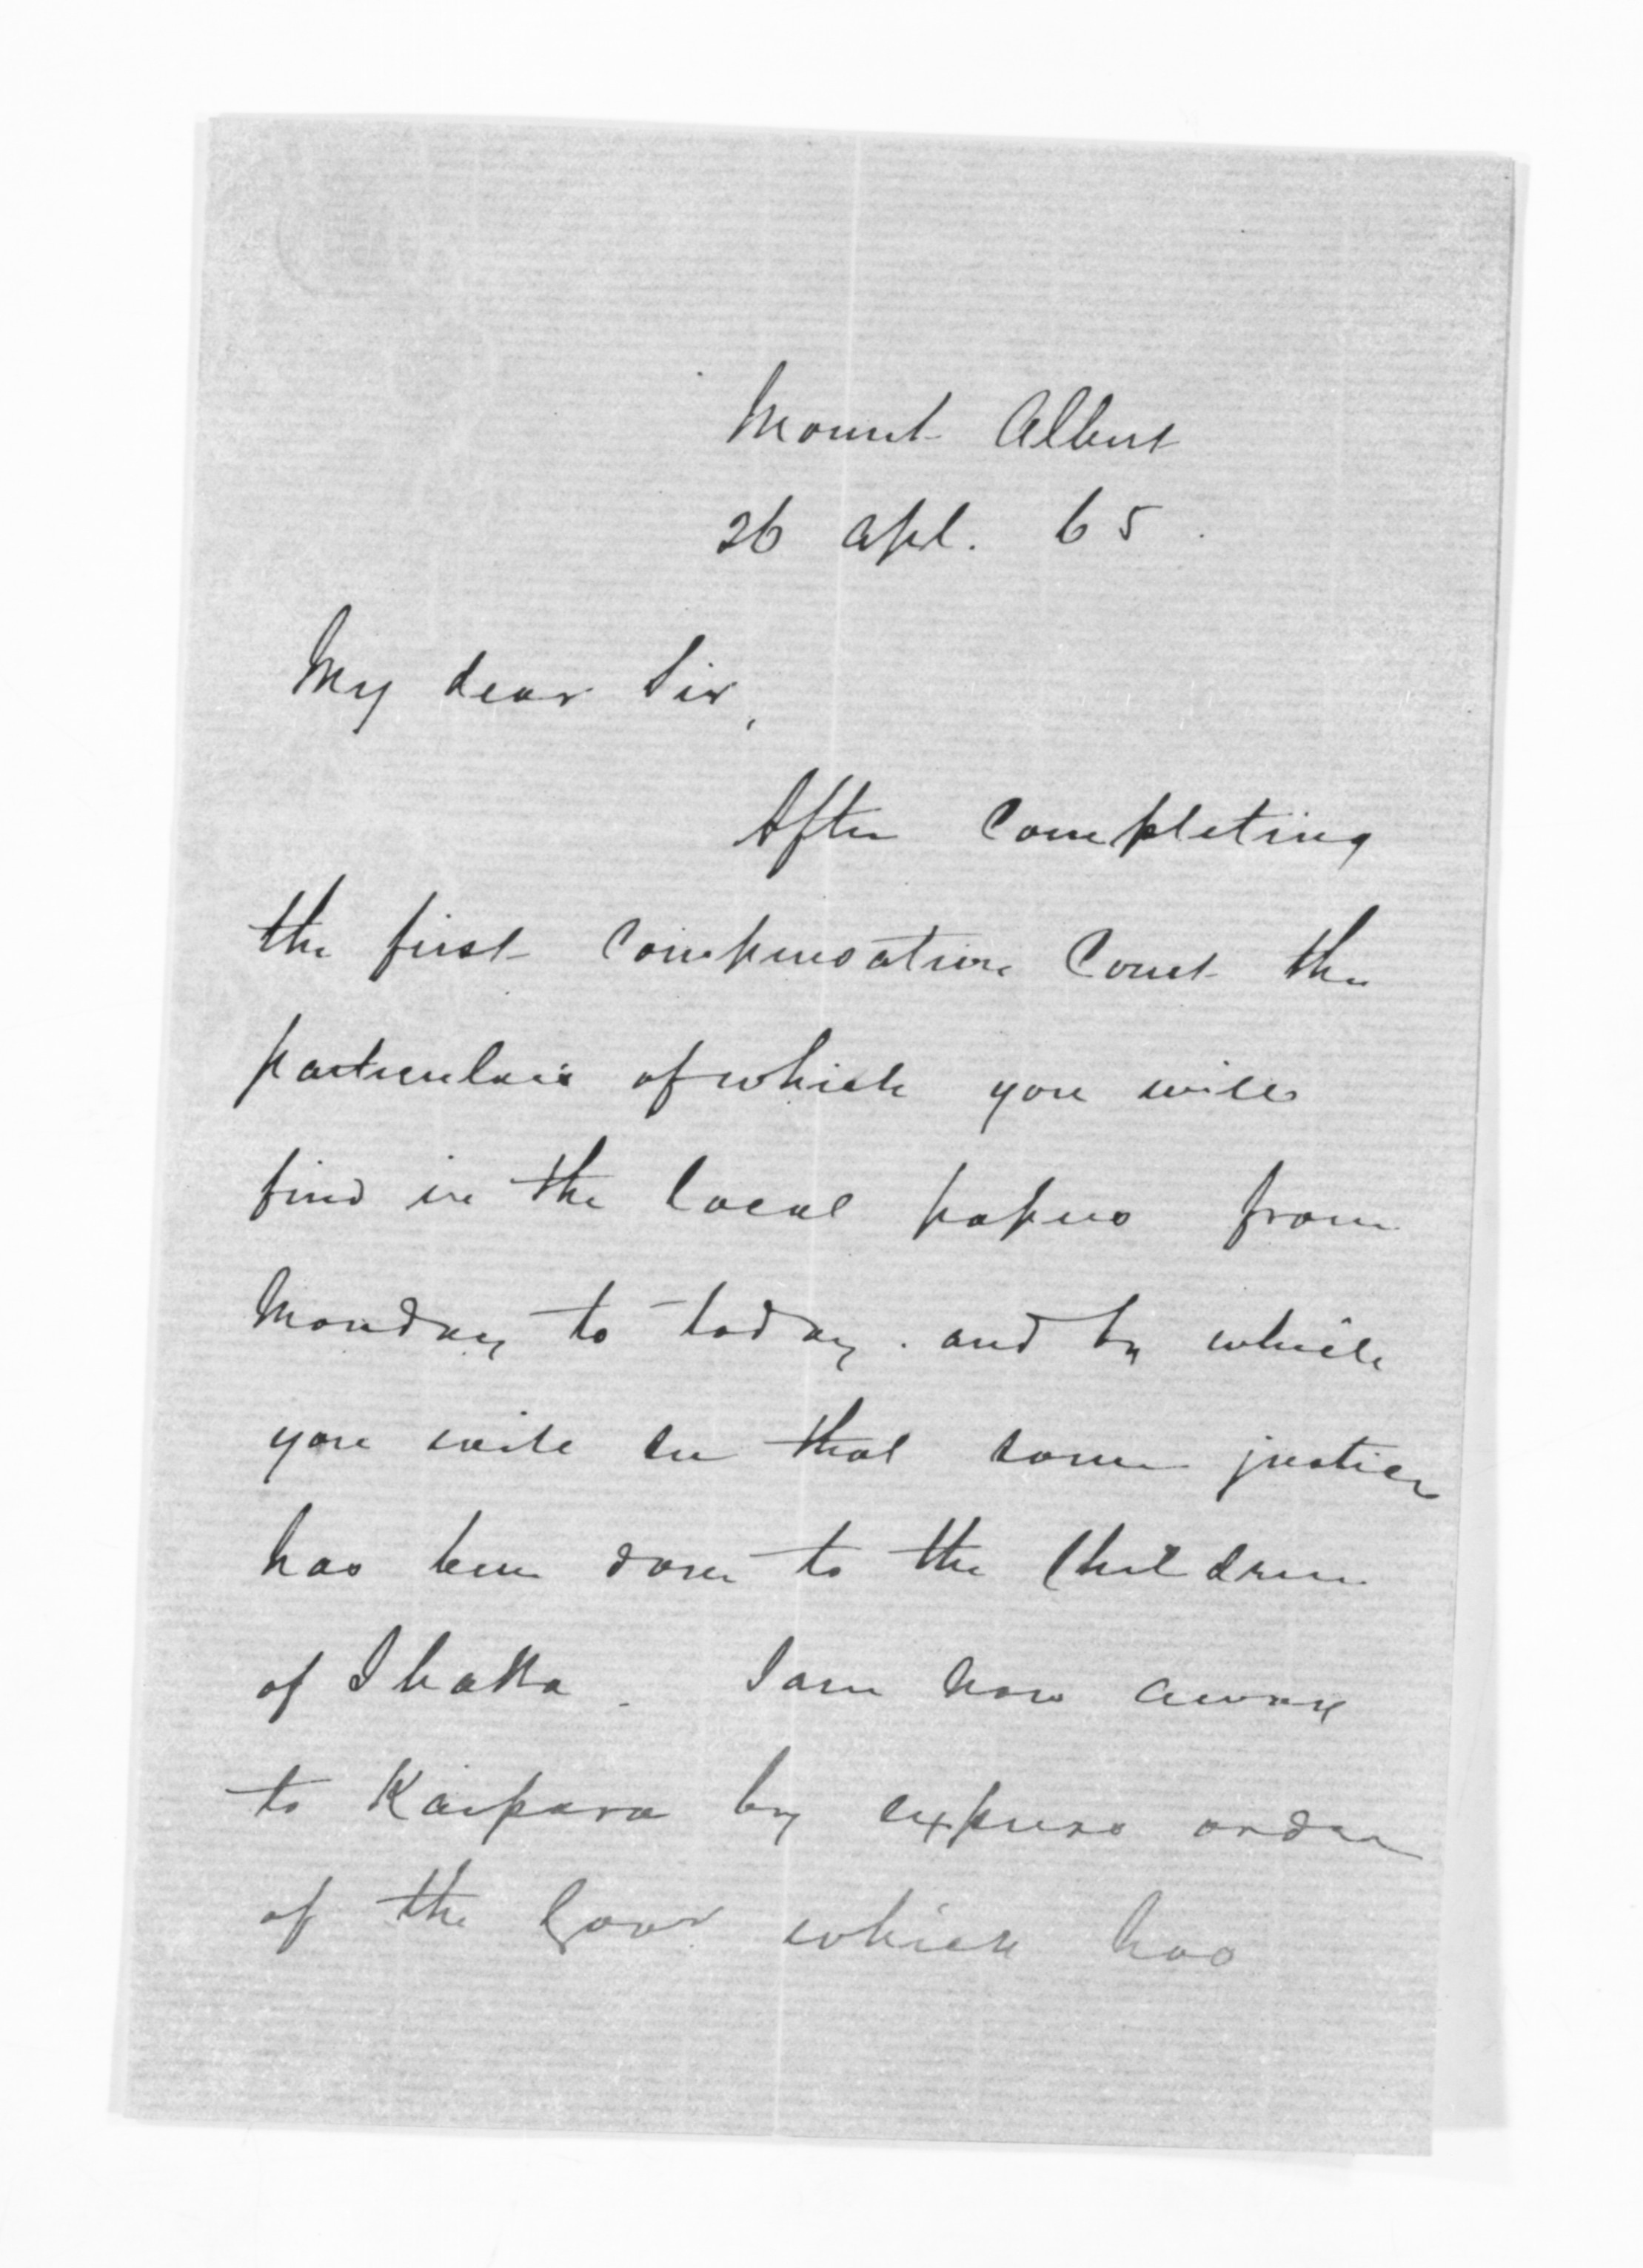 Mount Albert
26 Apl. 65.
My dear Sir,
After Completing
the first Compensation Court the
particulars of which you will
find in the local papers from
Monday to today. and by which
you will see that some justice
has been done to the Children
of Ihaka. I am now away
to Kaipara by express order
of the Govr which has